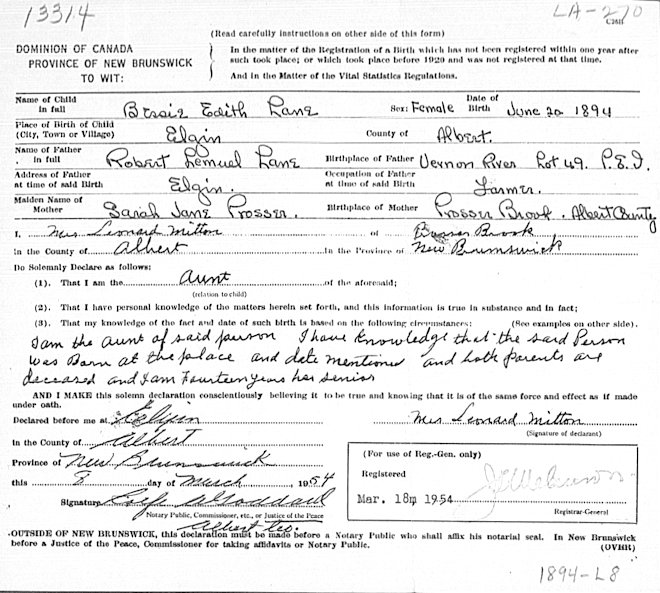 13314
LA-270
C26H
(Read carefully instructions on other side of this form)
DOMINION OF CANADA
PROVINCE OF NEW BRUNSWICK
TO WIT:
In the matter of the Registration of a Birth which has not been registered within one year after
such took place; or which took place before 1920 and was not registered at that time.
And in the Matter of the Vital Statistics Regulations.
Name of Child in full Bessie Edith Lane Sex: Female Date of Birth June 20 1894
Place of Birth of Child (City, Town or Village) Elgin County of Albert.
Name of Father in full Robert Lemuel Lane Birthplace of Father Vernon River Lot 49. P.E.I.
Address of Father at time of said Birth Elgin. Occupation of Father at time of said Birth Farmer.
Maiden Name of Mother Sarah Jane Prosser. Birthplace of Mother Prosser Brook. Albert County
I, Mrs Leonard Mitton of Brook
in the County of Albert in the Province of New Brunswick
Do Solemnly Declare as follows:
(1). That I am the Aunt of the aforesaid;
(relation to child)
(2). That I have personal knowledge of the matters herein set forth, and this information is true in substance and in fact;
(3). That my knowledge of the fact and date of such birth is based on the following circumstances: (See examples on other side).
I am the aunt of said person I have Knowledge that the said Person
was Born at the place and date mentioned and both parents are
deceased and I am Fourteen years her senior
AND I MAKE this solemn declaration conscientiously believing it to be true and knowing that it is of the same force and effect as if made
under oath.
Declared before me at Elgin
Mrs Leonard Mitton
(Signature of declarant)
In the County of Albert
Province of New Brunswick
this 8 day of March, 1954
Signature
Notary Public, Commissioner, etc., or Justice of the Peace
Albert Co.
(For use of Reg.-Gen. only)
Registered
Mar. 18m 1954
Registrar-General
OUTSIDE OF NEW BRUNSWICK, this declaration must be made before a Notary Public who shall affix his notarial seal. In New Brunswick
before a Justice of the Peace, Commissioner for taking affidavits or Notary Public.
(OVER)
1894-L8